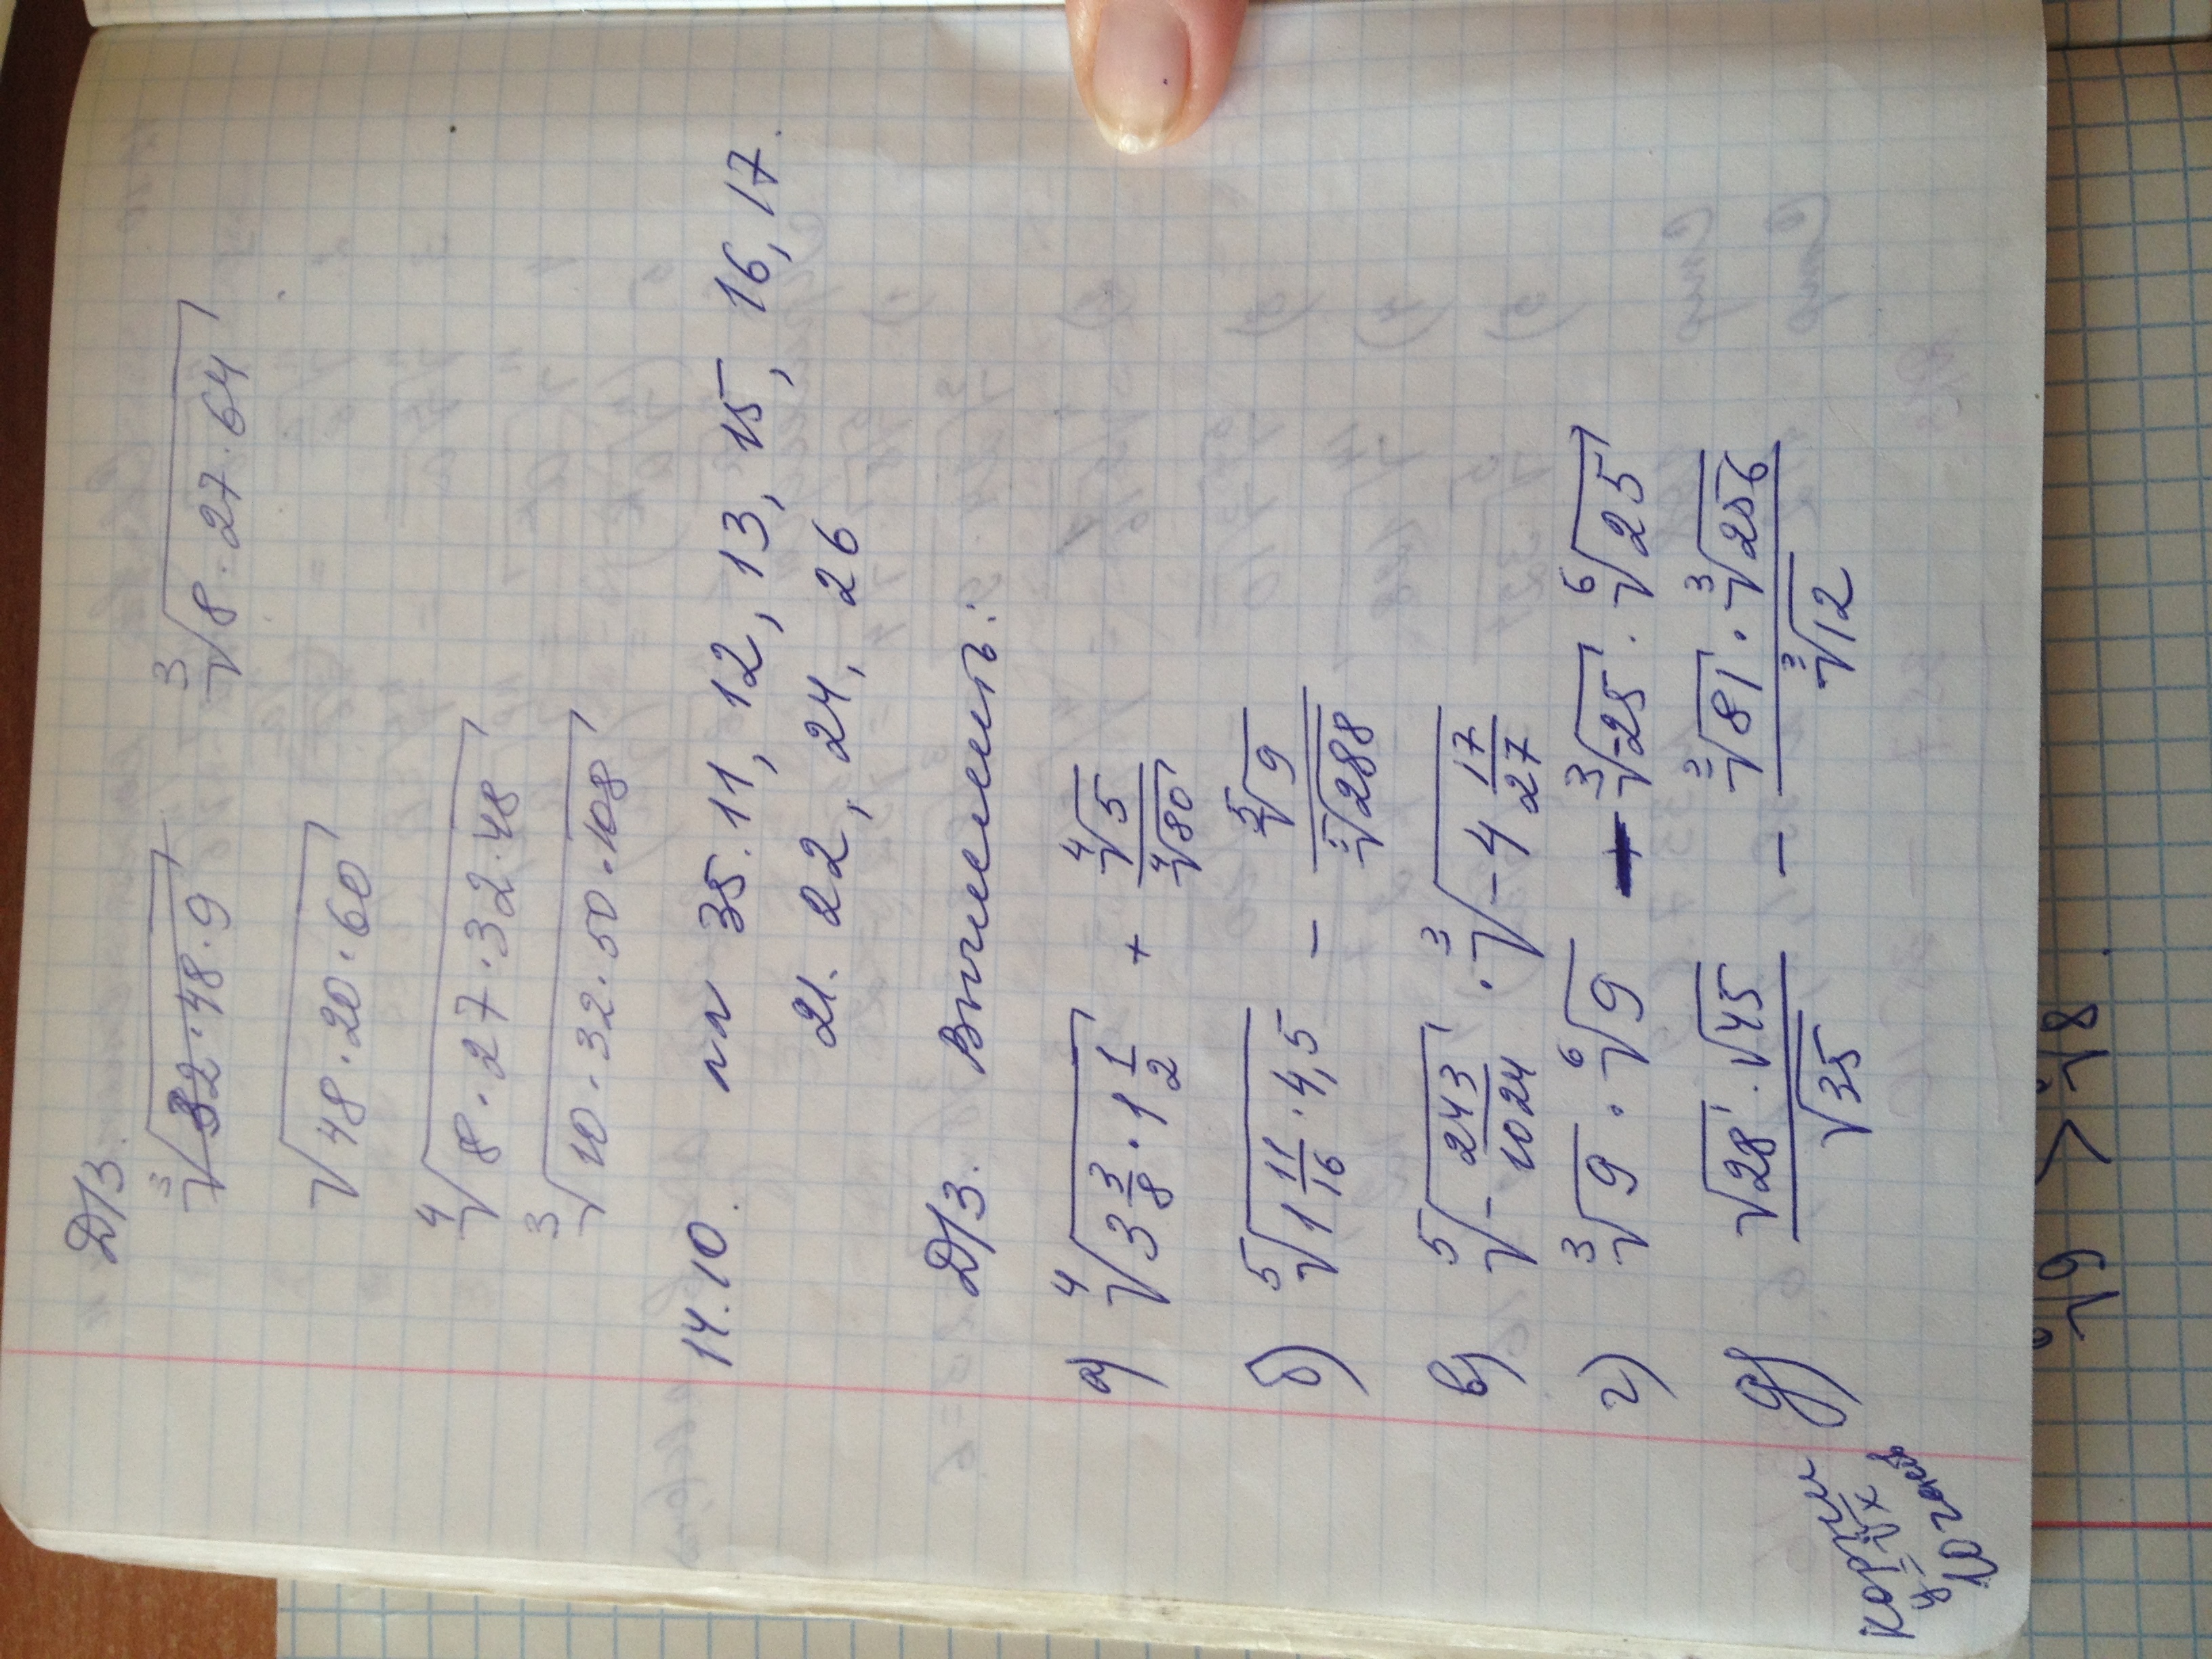 Д/З.
∛(32·48·9) ∛(8·27·64)
√(48·20·60)
∜(8·27·32·48)
∛(10·32·50·108)
14.10. пп 35.11, 12, 13, 15, 16, 17.
21. 22, 24, 26
Д/З. Вычислить:
а) ∜(3 3/8 · 1 1/2) + ∜5/∜80
б) ⁵√(1 11/16 · 4,5) - ⁵√9/⁵√288
в) ⁵√(-243/1024) · ∛(-4 17/27)
г) ∛9 · ⁶√9 - ∛-25 · ⁶√25
д) (√28 · √45)/√35 - (∛81 · ∛256)/∛12
10
⁶√9 >